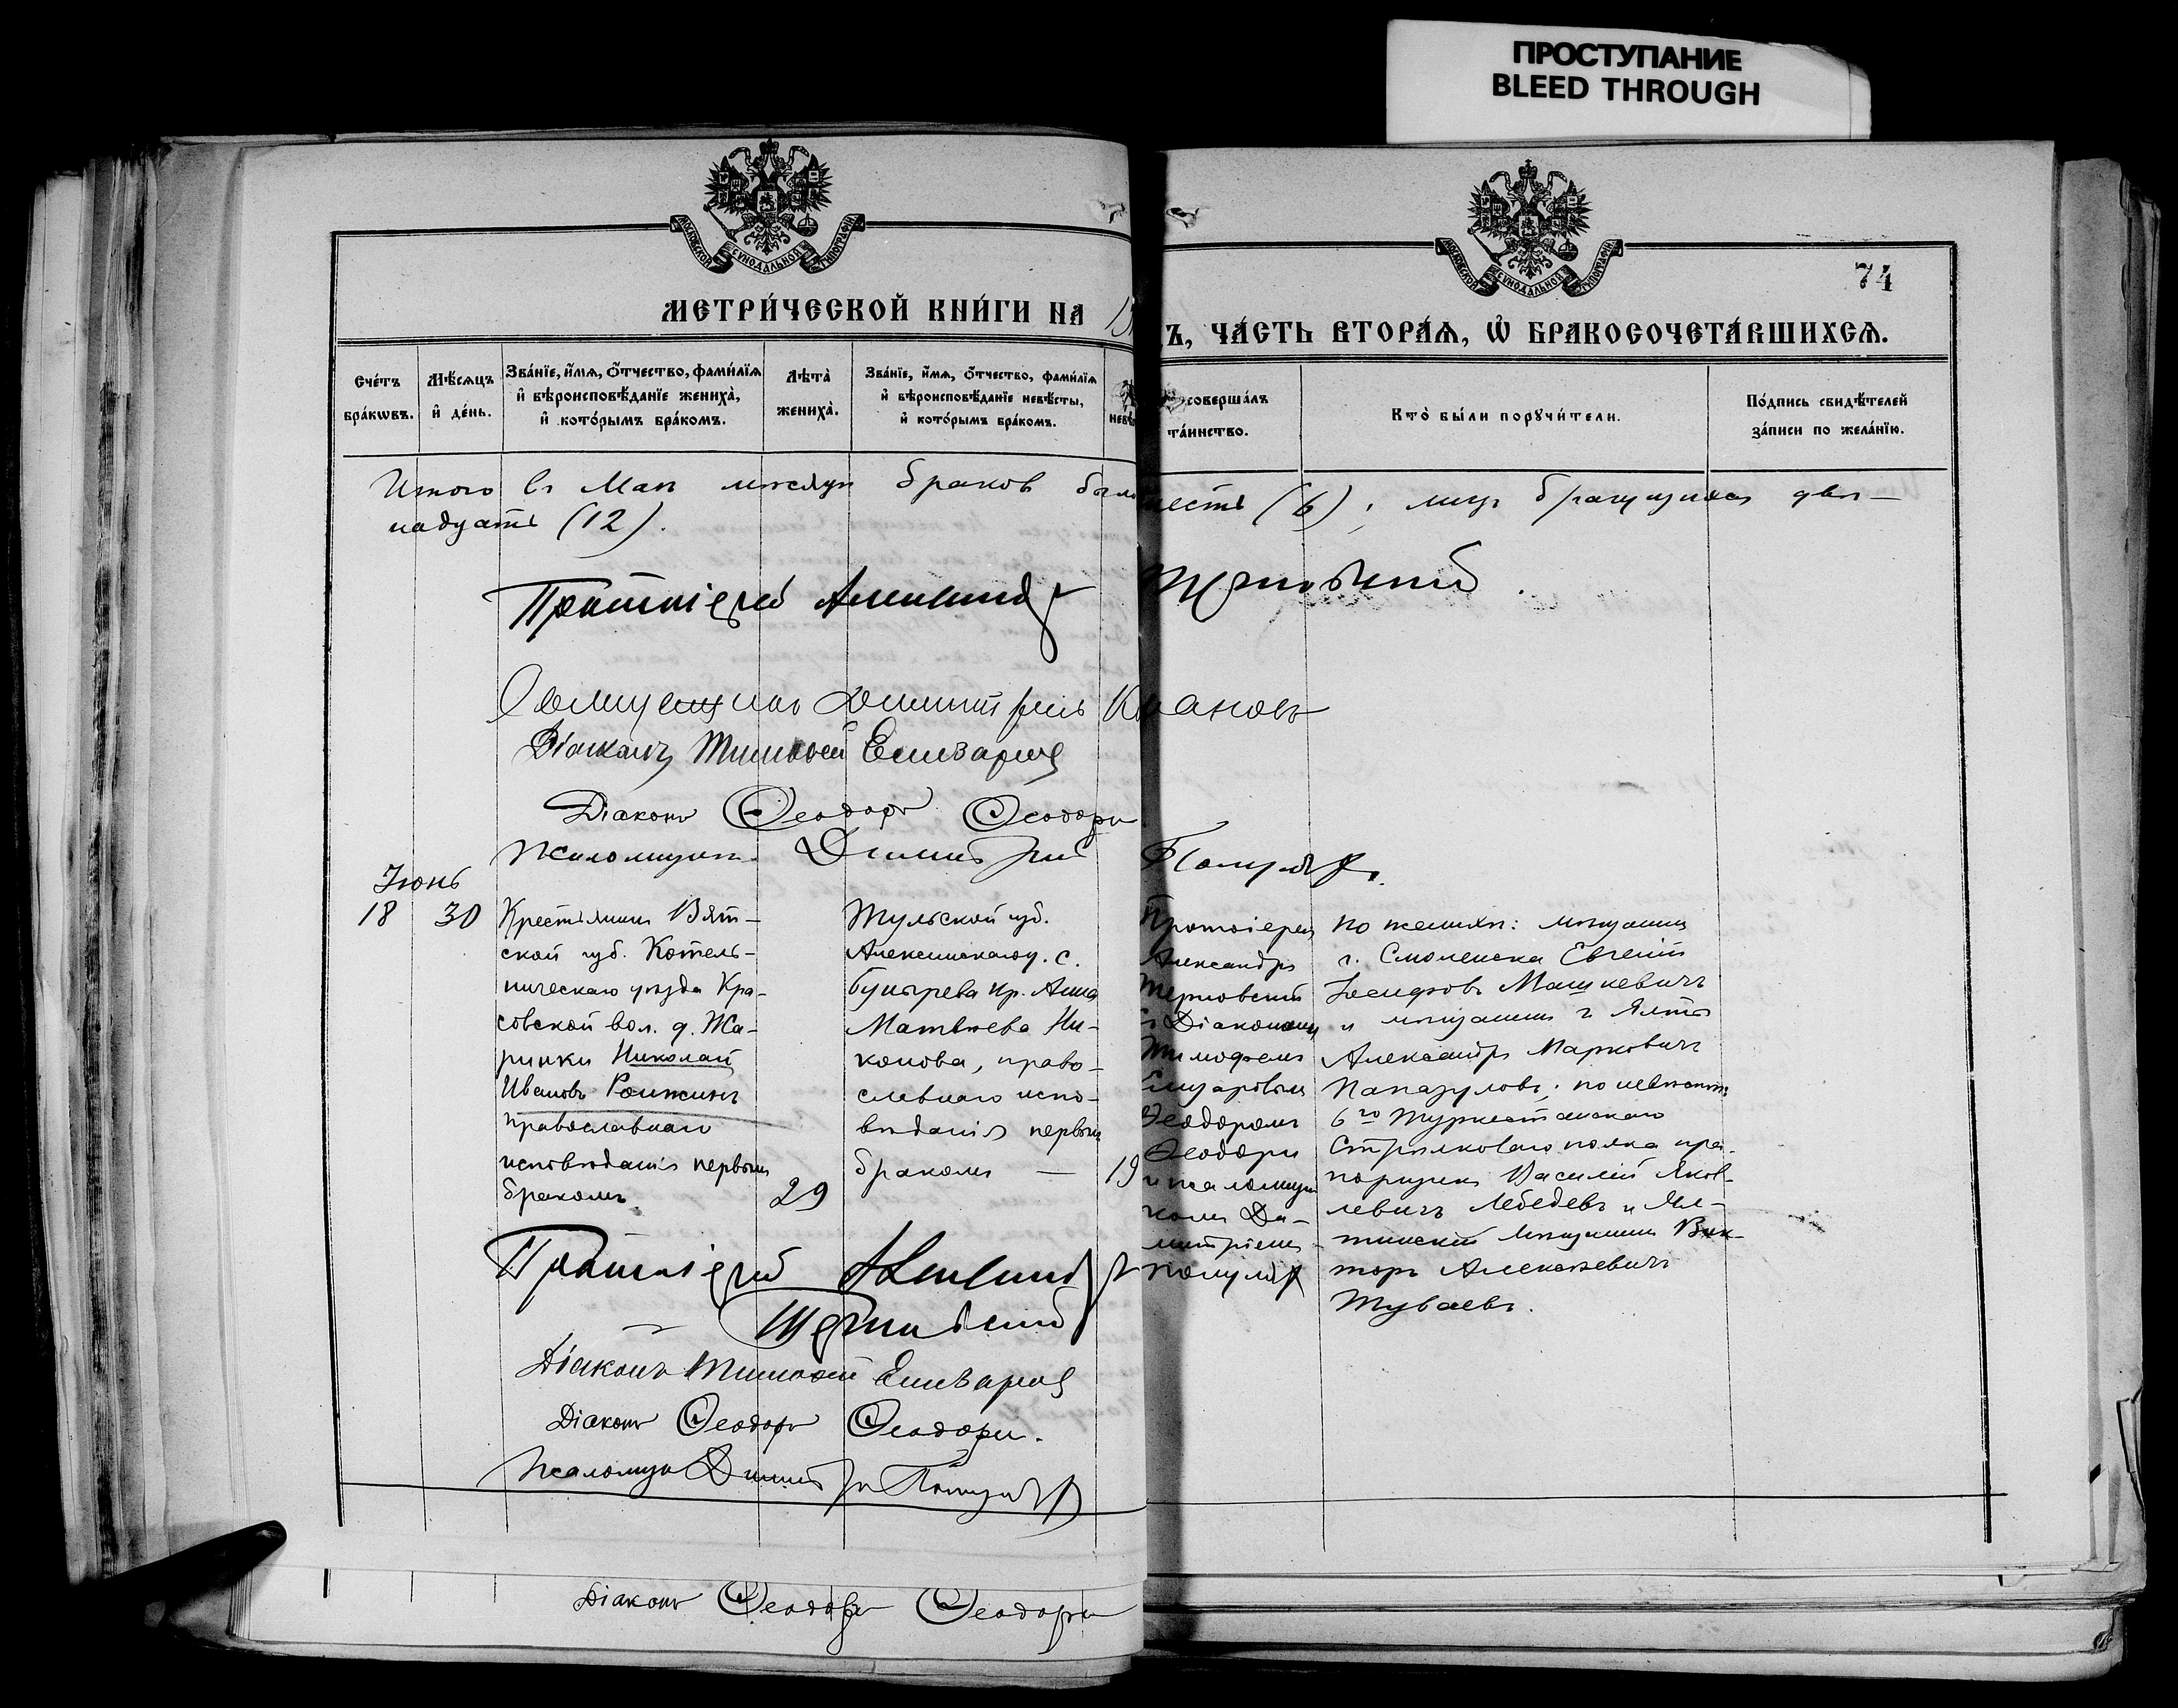 ПРОСТУПАНИЕ
BLEED THROUGH
МОСКОВСКОЙ СѴНОДАЛЬНОЙ ТИПОГРАФІИ
МОСКОВСКОЙ СѴНОДАЛЬНОЙ ТИПОГРАФІИ
74
МЕТРИ́ЧЕСКОЙ КНИ́ГИ НА
Ъ, ЧА́СТЬ ВТОРА́Ѧ, Ѡ҆ БРАКОСОЧЕТА́ВШИХСѦ.
Сче́тъ
бра́кѡвъ.
Мѣ́сѧцъ
и҆ де́нь.
Зва́нїе, и҆́мѧ, ѻ҆́тчество, фами́лїѧ
и҆ вѣроисповѣ́данїе жениха̀,
и҆ кото́рымъ бра́комъ.
Лѣ́та̀
жениха̀.
Зва́нїе, и҆́мѧ, ѻ҆́тчество, фами́лїѧ
и҆ вѣроисповѣ́данїе невѣ́сты,
и҆ кото́рымъ бра́комъ.
соверша́лъ
та́инство.
Кто̀ бы́ли порꙋчи́тели.
По́дпись свидѣ́телей
за́писи по жела́нїю.
Итого въ Маѣ мѣсяцѣ браковъ было
шесть (6); лицъ брачущихся двѣ-
надцать (12).
Протоіерей Александръ
Терновскій.
Священникъ Димитрій
Діаконъ Тимофей Елизаровъ
Діаконъ Ѳеодоръ Ѳеодори
Псаломщикъ Димитрій
Іюнь
18 30
Крестьянинъ Вят-
ской губ. Котель-
ническаго уѣзда Кра-
совской вол. д. Жа-
ринки Николай
Ивановъ
православнаго
исповѣданія первымъ
бракомъ
29
Тульской губ.
Алексинскаго у. с.
Бунырева кр. Анна
Матвѣева Ни-
конова, право-
славнаго испо-
вѣданія первымъ
бракомъ —
19
Протоіерей
Александръ
Терновскій
съ Діаконами
Тимофеемъ
Елизаровымъ
Ѳеодоромъ
Ѳеодори
и псаломщи
комъ Ди-
митріемъ
по женихѣ: мѣщанинъ
г. Смоленска Евгеній
Іосифовъ Машкевичъ
и мѣщанинъ г. Ялты
Александръ Марковичъ
Папазуловъ; по невѣстѣ:
6го Туркестанскаго
Стрѣлковаго полка пра-
порщикъ Василій Яков-
левичъ Лебедевъ и Ял-
тинскій мѣщанинъ Вик-
торъ Алексѣевичъ
Туваевъ.
Протоіерей Александръ
Терновскій
Діаконъ Тимофей Елизаровъ
Діаконъ Ѳеодоръ Ѳеодори.
Псаломщ Димитрій
Діаконъ Ѳеодоръ Ѳеодори